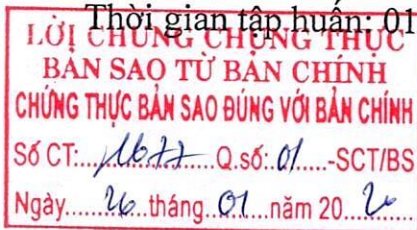 Thời gian tập huấn: 01
LỜI CHỨNG CHỨNG THỰC
BẢN SAO TỪ BẢN CHÍNH
CHỨNG THỰC BẢN SAO ĐÚNG VỚI BẢN CHÍNH
Số CT:.... ....Q.số: 01.....-SCT/BS
Ngày.......26...tháng...01...năm 20............